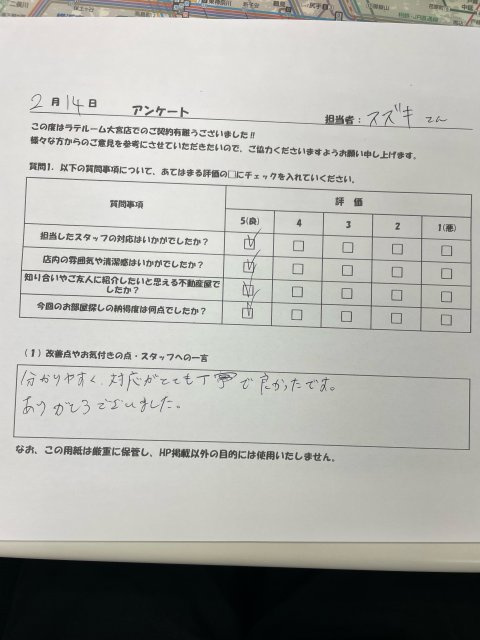 2月14日 アンケート 担当者：スズキさん
この度はラテルーム大宮店でのご契約有難うございました!!
様々な方からのご意見を参考にさせていただきたいので、ご協力くださいますようお願い申し上げます。
質問1．以下の質問事項について、あてはまる評価の□にチェックを入れていください。
質問事項 評 価
5(良) 4 3 2 1(悪)
担当したスタッフの対応はいかがでしたか？
店内の雰囲気や清潔感はいかがでしたか？
知り合いやご友人に紹介したいと思える不動産屋で
したか？
今回のお部屋探しの納得度は何点でしたか？
（1）改善点やお気付きの点・スタッフへの一言
分かりやすく、対応がとても丁寧で良かったです。
ありがとうございました。
なお、この用紙は厳重に保管し、HP掲載以外の目的には使用いたしません。